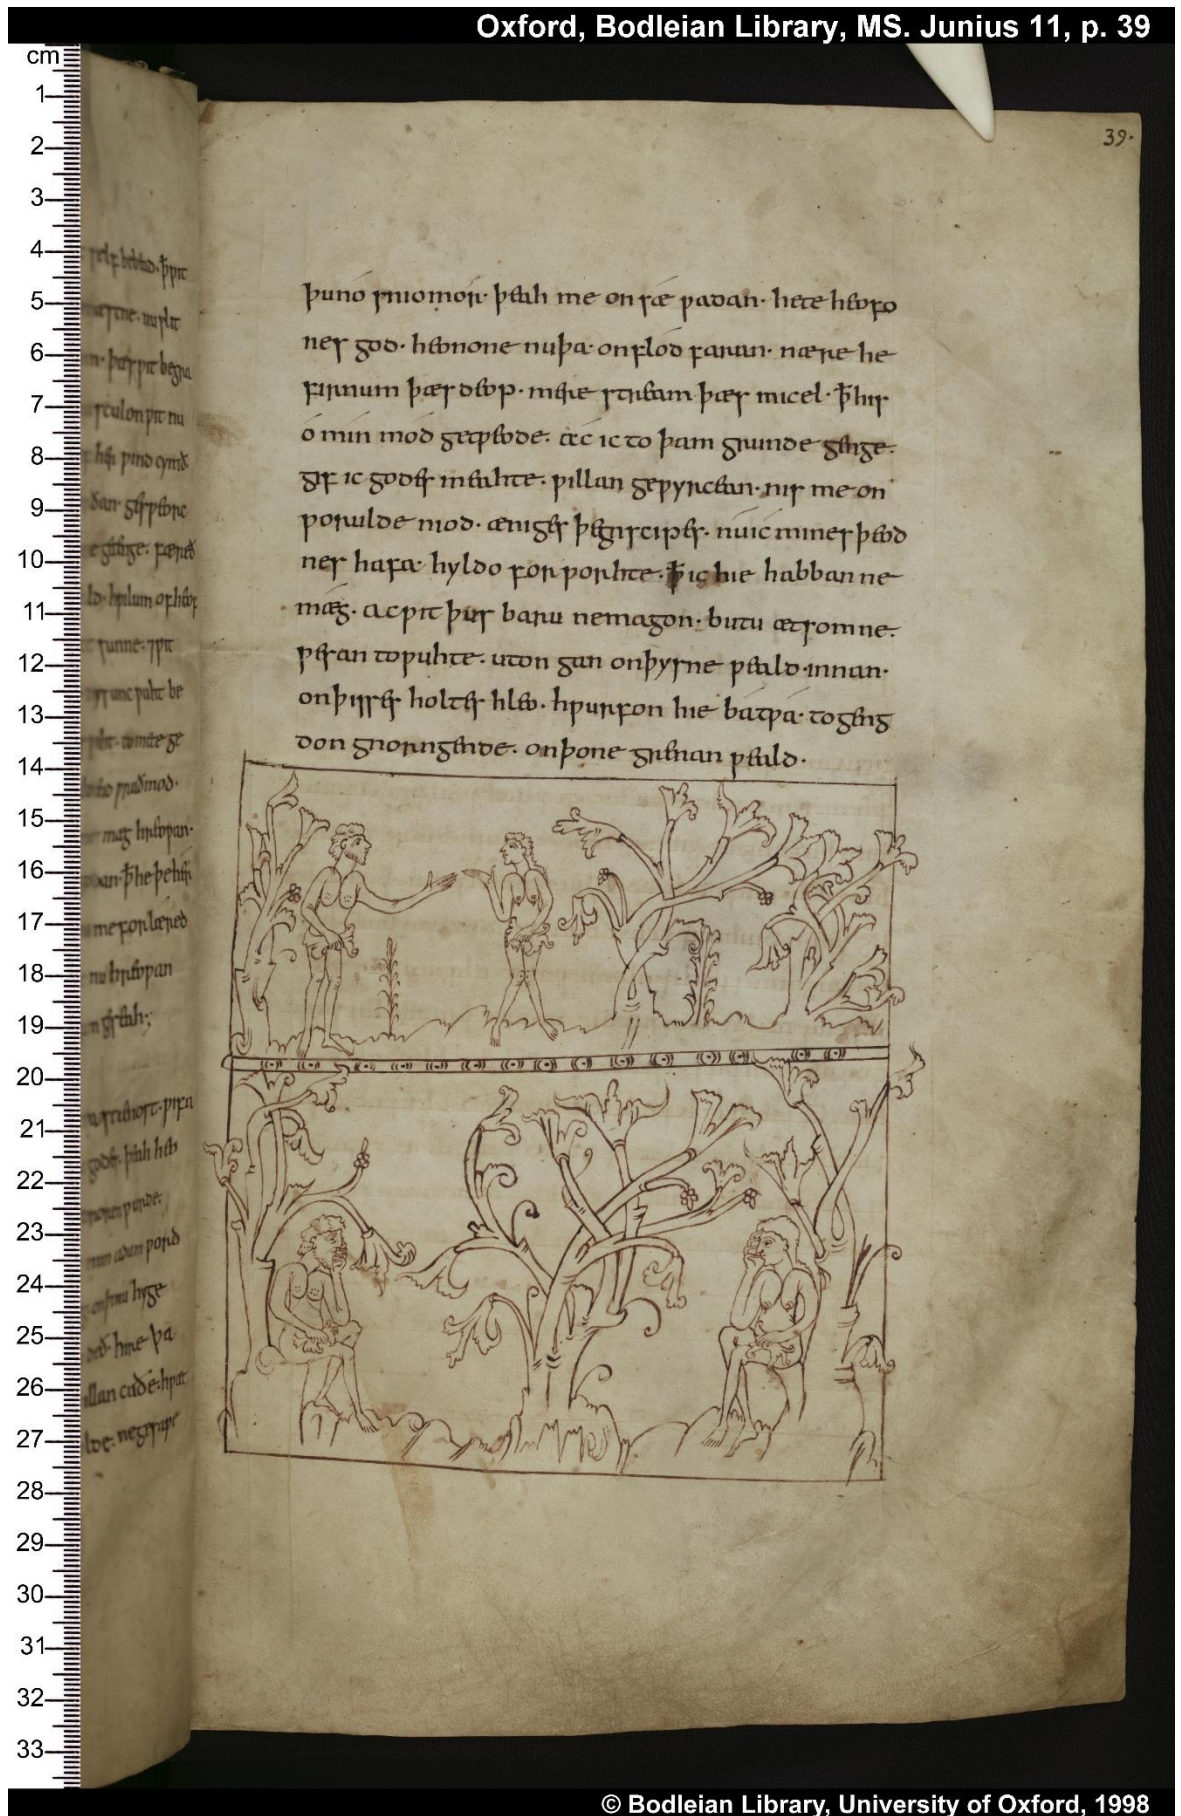 Oxford, Bodleian Library, MS. Junius 11, p. 39
cm
1
2
3
4
5
6
7
8
9
10
11
12
13
14
15
16
17
18
19
20
21
22
23
24
25
26
27
28
29
30
31
32
33
39.
þuno sniomór· þeah me on sǽ ƿadan· hete heofo
nes god· heonone nuþa· onflód faran· nære he
firnum þæs deop· mere stream þæs micel· ꝥ his
ó min mód getƿeode· ác ic to þam grunde genge·
gif ic godes meahte· ƿillan geƿyrcean· nis me on
ƿorulde niod· æniges þegnscipes· nú ic mines þeod
nes hafa· hyldo forƿorhte· ꝥ ic hie habban ne
mæg· ac ƿit þus baru nemagon· butu ætsomne·
ƿesan toƿuhte· uton gan onþysne ƿeald· innan·
onþisses holtes hleo· hƿurfon hie bátƿá· togeng
don gnorngende· onþone grenan ƿeald·
© Bodleian Library, University of Oxford, 1998